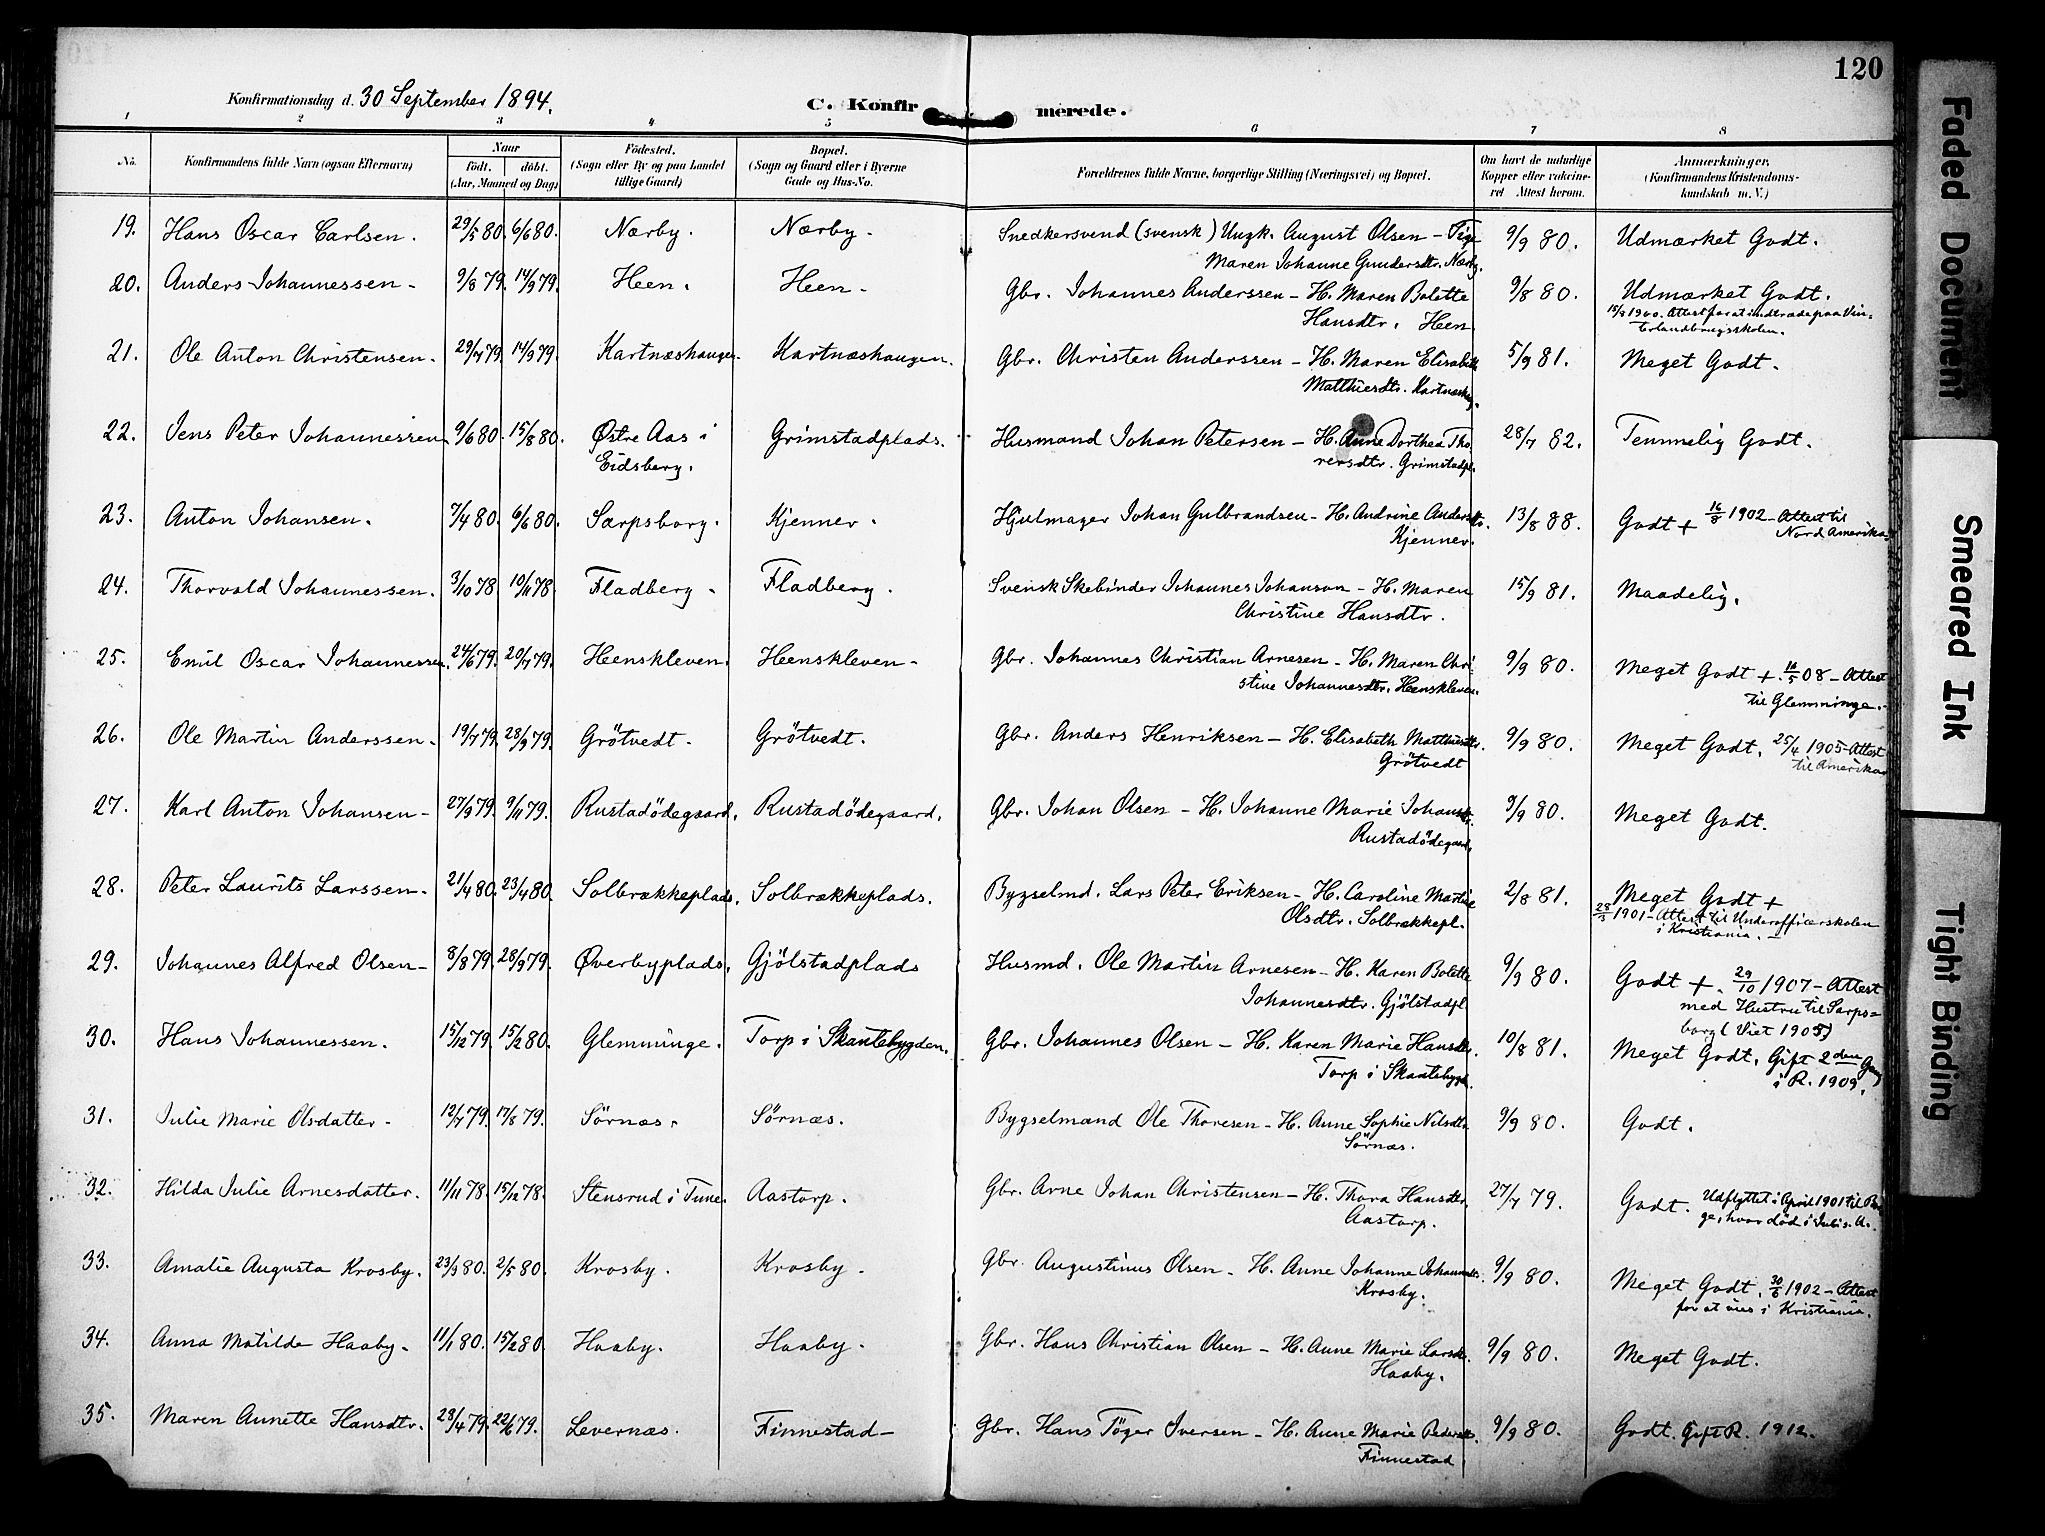 120
Konfirmationsdag d. 30 September 1894.
C. Konfirmerede.
1 2 3 4 5 6 7 8
No. Konfirmandens fulde Navn (ogsaa Efternavn) Naar født. døbt. (Aar, Maaned og Dag) Fødested. (Sogn eller By og paa Landet tillige Gaard) Bopæl. (Sogn og Gaard eller i Byerne Gade og Hus-No. Forældrenes fulde Navne, borgerlige Stilling (Næringsvei) og Bopæl. Om havt de naturlige Kopper eller vakcineret Attest herom. Anmærkninger, (Konfirmandens Kristendomskundskab m. V.)
19. Hans Oscar Carlsen. 29/5 80. 6/6 80. Nærby. Nærby. Snedkersvend (svensk) Ungk. August Olsen – Pige 9/9 80. Udmærket Godt.
Maren Johanne Gundersdtr. Nærby.
20. Anders Johannessen. 9/8 79. 14/9 79. Heen. Heen. Gbr. Johannes Anderssen – H. Maren Bolette 9/8 80. Udmærket Godt.
Hansdtr. Heen 15/9 1900. Attest for at indtræde paa Vin-
terlandbrugsskolen.
21. Ole Anton Christensen. 29/7 79. 14/9 79. Kartnæshaugen. Kartnæshaugen. Gbr. Christen Anderssen – H. Maren Elisabeth 5/9 81. Meget Godt.
Matthiesdtr. Kartnæshg.
22. Jens Peter Johannessen 9/6 80. 15/8 80. Østre Aas i Grimstadplads. Husmand Johan Petersen – H. Anne Dorthea Tho- 28/7 82. Temmelig Godt.
Eidsberg. rersdtr. Grimstadpl.
23. Anton Johansen. 7/4 80. 6/6 80. Sarpsborg. Kjenner. Hjulmager Johan Gulbrandsen – H. Andrine Andersdtr. 13/8 88. Godt + 16/8 1902 – Attest til
Kjenner. Nord Amerika.
24. Thorvald Johannessen. 3/10 78. 10/11 78. Fladberg. Fladberg. Svensk Skebinder Johannes Johanson – H. Maren 15/9 81. Maadelig.
Christine Hansdtr.
25. Emil Oscar Johannessen. 24/6 79. 20/7 79. Heenskleven. Heenskleven. Gbr. Johannes Christian Arnesen – H. Maren Chri- 9/9 80. Meget Godt +. 16/5 08 – Attest
stine Johannesdtr. Heenskleven. til Glemminge.
26. Ole Martin Anderssen. 19/7 79. 28/9 79. Grötvedt. Grötvedt. Gbr. Anders Henriksen – H. Elisabeth Matthiesdtr. 9/9 80. Meget Godt. 25/4 1905 – Attest
Grötvedt til Amerika
27. Karl Anton Johansen – 27/9 79. 9/11 79. Rustadödegaard. Rustadödegaard. Gbr. Johan Olsen – H. Johanne Marie Johansdtr. 9/9 80. Meget Godt.
Rustadödegaard.
28. Peter Laurits Larssen. 21/4 80. 23/4 80. Solbrækkeplads. Solbrækkeplads. Bygselmd. Lars Peter Eriksen – H. Caroline Martine 2/8 81. Meget Godt +
Olsdtr. Solbrækkepl. 28/3 1901 – Attest til Underofficerskolen
i Kristiania. –
29. Johannes Alfred Olsen – 8/8 79. 28/9 79. Øverbyplads. Gjölstadplads Husmd. Ole Martin Arnesen – H. Karen Bolette 9/9 80. Godt +. 29/10 1907 – Attest
Johannesdtr. Gjölstadpl. med Hustru til Sarps-
borg (Viet 1905)
30. Hans Johannessen. 15/12 79. 15/2 80. Glemminge. Torp i Skantebygden. Gbr. Johannes Olsen – H. Karen Marie Hansdtr. 10/8 81. Meget Godt. Gift 2den Gang
Torp i Skantebygd. i R. 1909.
31. Julie Marie Olsdatter. 12/7 79. 17/8 79. Sörnæs. Sörnæs. Bygselmand Ole Thoresen – H. Anne Sophie Nilsdtr. 9/9 80. Godt.
Sörnæs.
32. Hilda Julie Arnesdatter. 11/11 78. 15/12 78. Stensrud i Tune. Aastorp. Gbr. Arne Johan Christensen – H. Thora Hansdtr. 27/7 79. Godt. Udflyttet i April 1901 til
Aastorp. hvor död i Juli s. A.
33. Amalie Augusta Krosby. 23/3 80. 2/5 80. Krosby. Krosby. Gbr. Augustinus Olsen – H. Anne Johanne Johannesdtr. 9/9 80. Meget Godt. 30/6 1902 – Attest
Krosby. for at vies i Kristiania.
34. Anna Matilde Haaby. 11/1 80. 15/2 80. Haaby. Haaby. Gbr. Hans Christian Olsen – H. Anne Marie Larsdtr. 9/9 80. Meget Godt.
Haaby.
35. Maren Annette Hansdtr. 28/4 79. 22/6 79. Levernæs. Finnestad – Gbr. Hans Töger Iversen – H. Anne Marie Pedersdtr. 9/9 80. Godt. Gift R. 1912.
Finnestad
Faded Document
Smeared Ink
Tight Binding